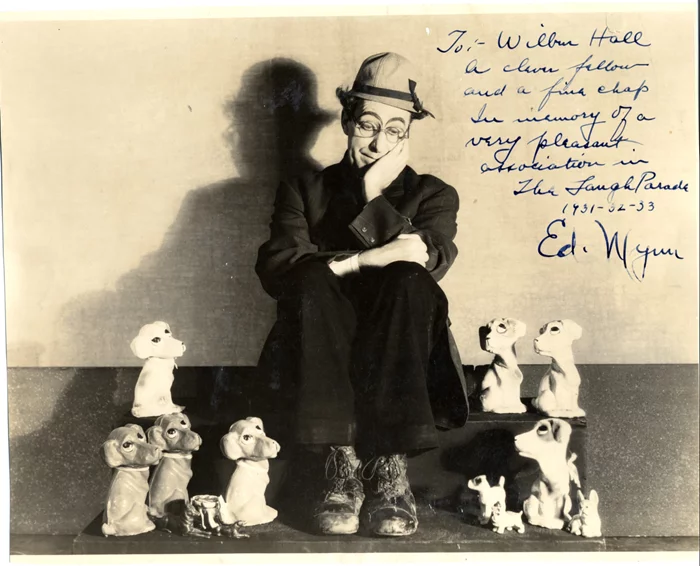 To:- Wilbur Hall
A clever fellow
and a fine chap
In memory of a
very pleasant
association in
The Laugh Parade
1931-32-33
Ed. Wynn